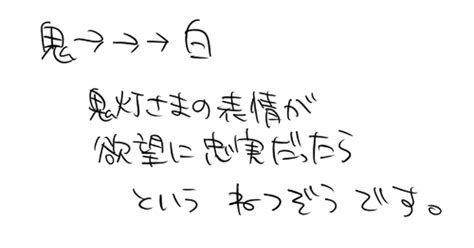 鬼→→→白
鬼灯さまの表情が
欲望に忠実だったら
という ねつぞうです。